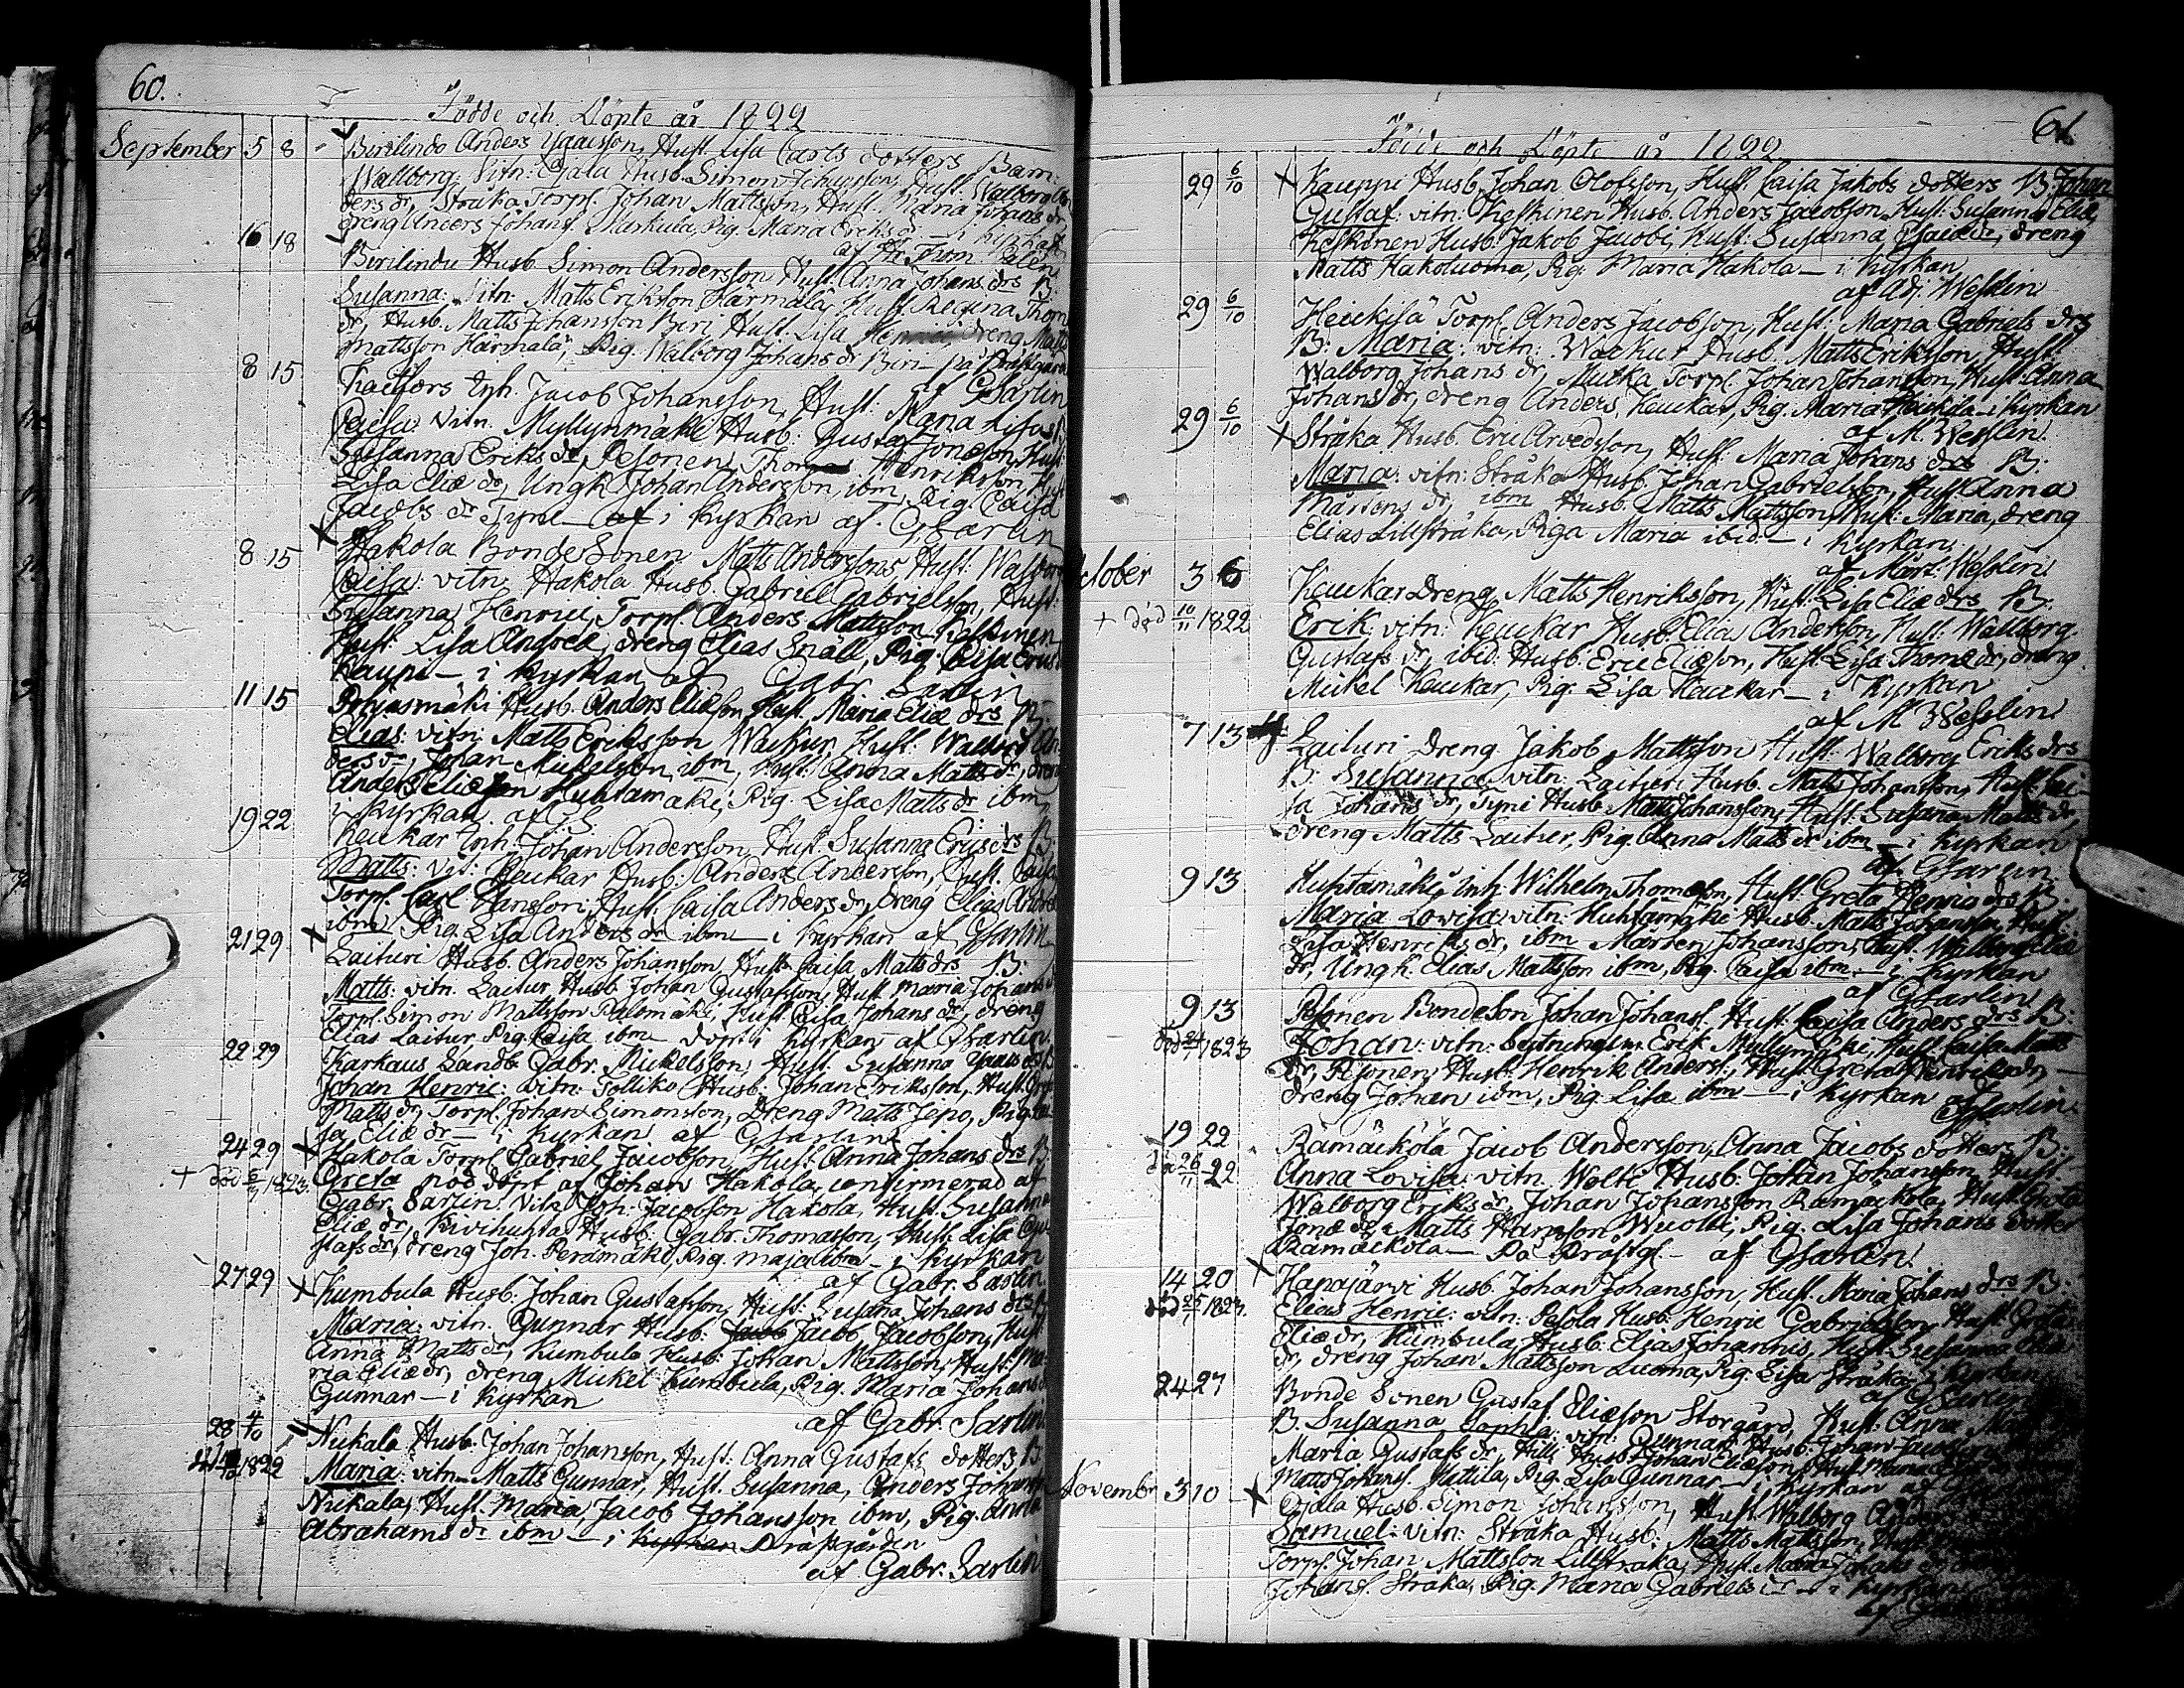 60.
Födde och Döpte år 1822
September 5 8 Birilindo Anders Hust Lisa Carls dotters Barn:
Wallborg: Vitn: Ojala Husb. Simon Hust. Walborg An
ders dr, Stråka Torp. Johan Mattsson, Hust. Maria Johans dr
dreng Anders Johans. Markula, Pig. Maria Eriks d. i kyrkan
af Thom.
16 18 Birilindo Husb. Simon Andersson Hust. Anna Johans drs B.
Susanna: Vitn: Matts Eriksson Härmälä, Hust. Regina Thom
dr, Husb. Matts Johansson Biri Hust. Lisa Henrici, dreng Matts
Mattsson Härmälä, Pig. Walborg Johans dr Biri på Prästgård
af GSarlin
8 15 Inh. Jacob Johansson, Hust. Maria Lisas B.
Caisa: Vitn. Myllynmäki Husb: Gustaf Jonæson, Hust:
Susanna Eriks dr, Pesonen Thomas Henriksson, Hust
Lisa Eliæ dr, Ungk Johan Andersson, ibm, Pig. Caisa
Jacobs dr Tyni i kyrkan af GSarlin
8 15 Hakola BondeSonen Matts Anderssons, Hust: Walborg
Caisa: vitn: Hakola Husb. Gabriel Gabrielson, Hust:
Susanna Henric, Torp. Anders Mattsson Keskinen
Hust. Lisa Andreæ, dreng Elias Snäll, Pig. Caisa Erics
Kaupi - i kyrkan af Gabr. Sarlin
11 15 Pohjasmäki Husb. Anders Eliæson, Hust. Maria Eliæ drs B.
Elias: vitn: Matts Eriksson Warkur, Hust: Walborg An
ders dr, Johan Mickelson, ibm, Hust. Anna Matts dr, dreng
Anders Eliæson Huhtamäki, Pig. Lisa Matts dr ibm
i kyrkan af GS
19 22 Keukar Inh. Johan Andersson, Hust. Susanna drs B.
Matts: vit: Keukar Husb: Anders Andersson, Hust. Caisa
Torp. Carl Hansson, Hust: Caisa Anders dr, dreng Elias Andre
ibm, Pig. Lisa Anders dr ibm - i kyrkan af GSarlin
21 29 Laituri Husb. Anders Johansson Hust Caisa Matts drs B:
Matts: vitn. Laitur Husb Johan Gustafsson, Hust Maria Johans d
Torp. Simon Mattsson Palomäki, Hust Caisa Johans dr, dreng
Elias Laitur, Pig. Caisa ibm - döpt i kyrkan af GSarlin
22 29 Karhaus Landb Gabr. Mickelsson, Hust: Susanna drs B.
Johan Henric: vitn: Pollike Husb: Johan Eriksson, Hust.
Matts dr, Torp. Johan Simonsson, Dreng Matts Jepo, Pig. Ca
sa Eliæ dr - i kyrkan af GSarlin
24 29 Hakola Torp Gabriel Jacobson, Hust. Anna Johans drs B.
+ död 1823. Greta nöddöpt af Johan Hakola, confirmerad af
Gabr. Sarlin. Vitn Joh. Jacobsson Hakola, Hust. Susanna
Eliæ dr, Husb. Gabr. Thomasson, Hust: Lisa Gu
stafs dr, dreng Joh. Perämäki, Pig. Maja ibm - i kyrkan
af Gabr. Sarlin
27 29 Kumbula Husb. Johan Gustafsson, Hust: Susana Johans drs B.
Maria: vitn. Gunnar Husb: Jacob Jacob Jacobson, Hust.
Anna Matts dr, Kumbula Husb. Johan Mattsson, Hust: Ma
ria Eliæ dr, dreng Mickel Kumbula, Pig. Maria Johans
Gunnar - i kyrkan
af Gabr. Sarlin
28 4/10 Nickala Husb. Johan Johansson, Hust: Anna Gustafs dotters B.
1822 Maria: vitn. Matts Gunnar, Hust. Susanna, Anders Johansson
Nickala, Hust. Maria, Jacob Johansson ibm, Pig. Anna
Abrahams dr ibm - i kyrkan Präfsgården
af Gabr. Sarlin
61.
Födde och Döpte år 1822
29 6/10 Kauppi Husb. Johan Olofsson, Hust. Caisa Jakobs dotters B. Johan
Gustaf: vitn: Keskinen Husb. Anders Jacobson Hust: Susanna Eliæ,
Keskinen Husb. Jakob Jacobi, Hust: Susanna dreng
Matts Hakoluoma, Pig. Maria Hakola - i kyrkan
af Adj. Wesslin
29 6/10 Heickilä Torp. Anders Jacobson, Hust. Maria Gabriels drs
B: Maria: vitn: Warkur Husb. Matts Eriksson, Hust:
Walborg Johans dr, Mutka Torp. Johan Johansson, Hust Anna
Johans dr, dreng Anders Keukar, Pig. Maria Heickila - i kyrkan
af M. Wesslin.
29 6/10 Stråka Husb. Eric Arvedsson, Hust. Maria Johans drs B:
Maria: vitn: Stråka Husb. Johan Gabrielson, Hust Anna
Mårtens dr, ibm Husb. Matts Mattsson, Hust: Maria, dreng
Elias Lillstråka, Piga Maria ibid - i kyrkan.
af Mårt: Wesslin
October 3 6 Keukar Dreng Matts Henriksson, Hust. Lisa Eliæ drs B:
+ död 10/11 1822 Erik: vitn: Keukar Husb. Elia Andersson, Hust: Wallborg
Gustafs dr, ibid: Husb: Eric Eliæson, Hust: Lisa Thomæ dr, dreng
Mickel Keukar, Pig. Lisa Keukar - i kyrkan
af M Wesslin
7 13 Laituri Dreng Jakob Mattsson Hust. Walborg Eriks drs
B: Susanna vitn: Laituri Husb. Matts Johansson, Hust: Cai
sa Johans dr, Tyni Husb. Matts Johansson, Hust. Susana Matts dr,
dreng Matts Laitur, Pig. Anna Matts dr ibm - i kyrkan
af GSarlin
9 13 Huhtamäki Inh. Wilhelm Thomæson, Hust. Greta Henrics drs B.
Maria Lowisa vitn: Huhtamäki Husb. Matts Johansson, Hust.
Lisa Henriks dr, ibm Mårten Johansson, Hust. Wallborg Eliæ
dr, Ungk. Elias Mattsson ibm, Pig. Caisa ibm - i kyrkan
af GSarlin
9 13 Pesonen BondeSon Johan Johans, Hust. Caisa Anders drs B.
död 1823 Johan: vitn: Erik Myllymäki, Hust Caisa Matts
dr, Pesonen Husb: Henrik Anders, Hust: Greta Henriks dr,
dreng Johan ibm, Pig. Lisa ibm - i kyrkan af GSarlin
19 22 Rämäckölä Jacob Andersson, Anna Jacobs dotters B.
26/11 22 Anna Lovisa: vitn. Wolti Husb. Johan Johansson, Hust
Walborg Eriks dr, Johan Johansson Rämäckölä, Hust. Greta
Jonæ dr, Matts Hansson Wuolti, Pig. Lisa Johans dotter
Rämäckölä - På Präfsg. - af GSarlin.
14 20 Hapajärvi Husb. Johan Johansson, Hust. Maria Johans drs B.
död 1823. Elias Henric: vitn: Pesola Husb. Henric Gabrielsson, Hust. Greta
Eliæ dr, Kumbula Husb: Elias Johannis, Hust. Susanna Eliæ
dr, dreng Johan Mattsson Luoma, Pig. Lisa Stråka, i kyrkan
af GSarlin
24 27 Bonde Sonen Gustaf Eliæson Storgård, Hust. Anna
B. Susanna Sophia: vitn: Gunnar Husb: Johan Jacobson
Maria Gustafs dr, Hilli Husb Johan Eliæson, Hust Maria
Matts Johans. Hattula, Pig. Lisa Gunnar - i kyrkan af
November 3 10 Ojala Husb. Simon Johansson, Hust. Walborg Anders
Samuel: vitn: Stråka Husb: Matts Mattsson, Hust
Torp. Johan Mattsson Lillstråka, Hust. Maria Johans
Johans. Stråka, Pig. Maria Gabriels dr - i kyrkan
af